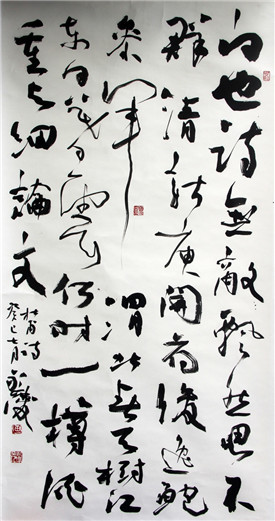 白也诗無敵飘然思不
群清新庾開府俊逸鲍
参军渭北春天樹江
東日暮雲何时一樽酒
重与細論文
杜甫诗
癸巳七月